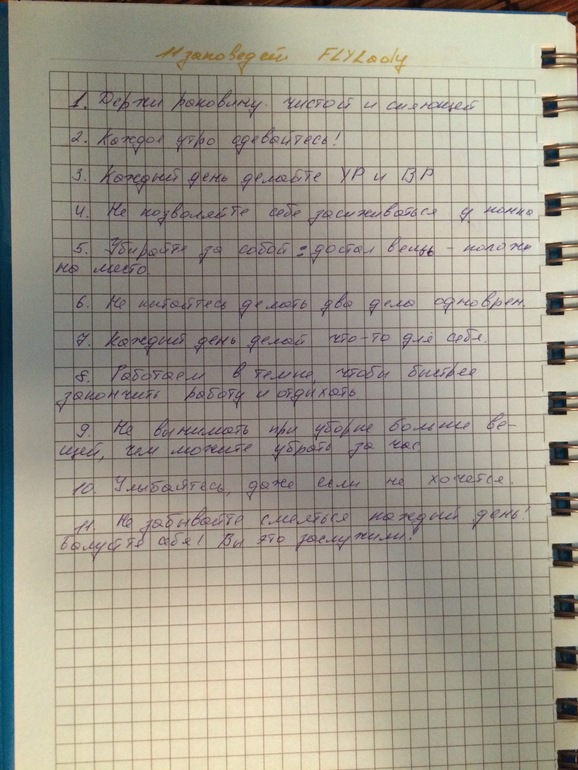 11 заповедей FLYLady
1. Держи раковину чистой и сияющей
2. Каждое утро одевайтесь!
3. Каждый день делайте УР и ВР
4. Не позволяйте себе засиживаться у компа
5. Убирайте за собой: достал вещь - положи
на место
6. Не пытайтесь делать два дела одноврем.
7. Каждый день делай что-то для себя.
8. Работаем в темпе, чтобы быстрее
закончить работу и отдыхать
9. Не вынимать при уборке больше ве-
щей, чем можете убрать за час
10. Улыбайтесь, даже если не хочется.
11. Не забывайте смеяться каждый день!
Балуйте себя! Вы это заслужили!